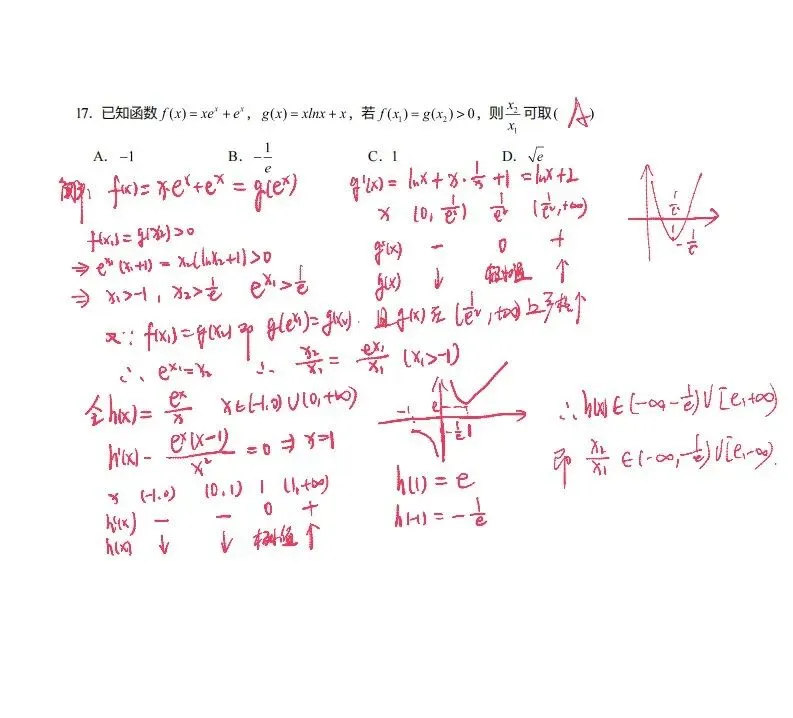 17. 已知函数 f(x)=xeˣ+eˣ，g(x)=xlnx+x，若 f(x₁)=g(x₂)>0，则 x₂/x₁ 可取( A )
A. −1 B. −1/e C. 1 D. √e
解: f(x)=x·eˣ+eˣ=g(eˣ)
g'(x)=lnx+x·1/x+1=lnx+2
x (0,1/e²) 1/e² (1/e²,+∞)
g'(x) − 0 + 
g(x) ↓ 极小值 ↑
1/e²
−1/e²
f(x₁)=g(x₂)>0
⇒ eˣ¹(x₁+1)=x₂(lnx₂+1)>0
⇒ x₁>−1, x₂>1/e eˣ¹>1/e
又∵ f(x₁)=g(x₂) 即 g(eˣ¹)=g(x₂). 且g(x)在(1/e²,+∞)上 ↑
∴ eˣ¹=x₂ ∴ x₂/x₁=eˣ¹/x₁ (x₁>−1)
令h(x)=eˣ/x x∈(−1,0)∪(0,+∞)
h'(x)−eˣ(x−1)/x²=0⇒x=1
x (−1,0) (0,1) 1 (1,+∞)
h'(x) − − 0 +
h(x) ↓ ↓ 极小值 ↑
−1 e −1/e 1
h(1)=e
h(−1)=−1/e
∴h(x)∈(−∞,−1/e)∪[e,+∞)
即 x₂/x₁∈(−∞,−1/e)∪[e,−∞).